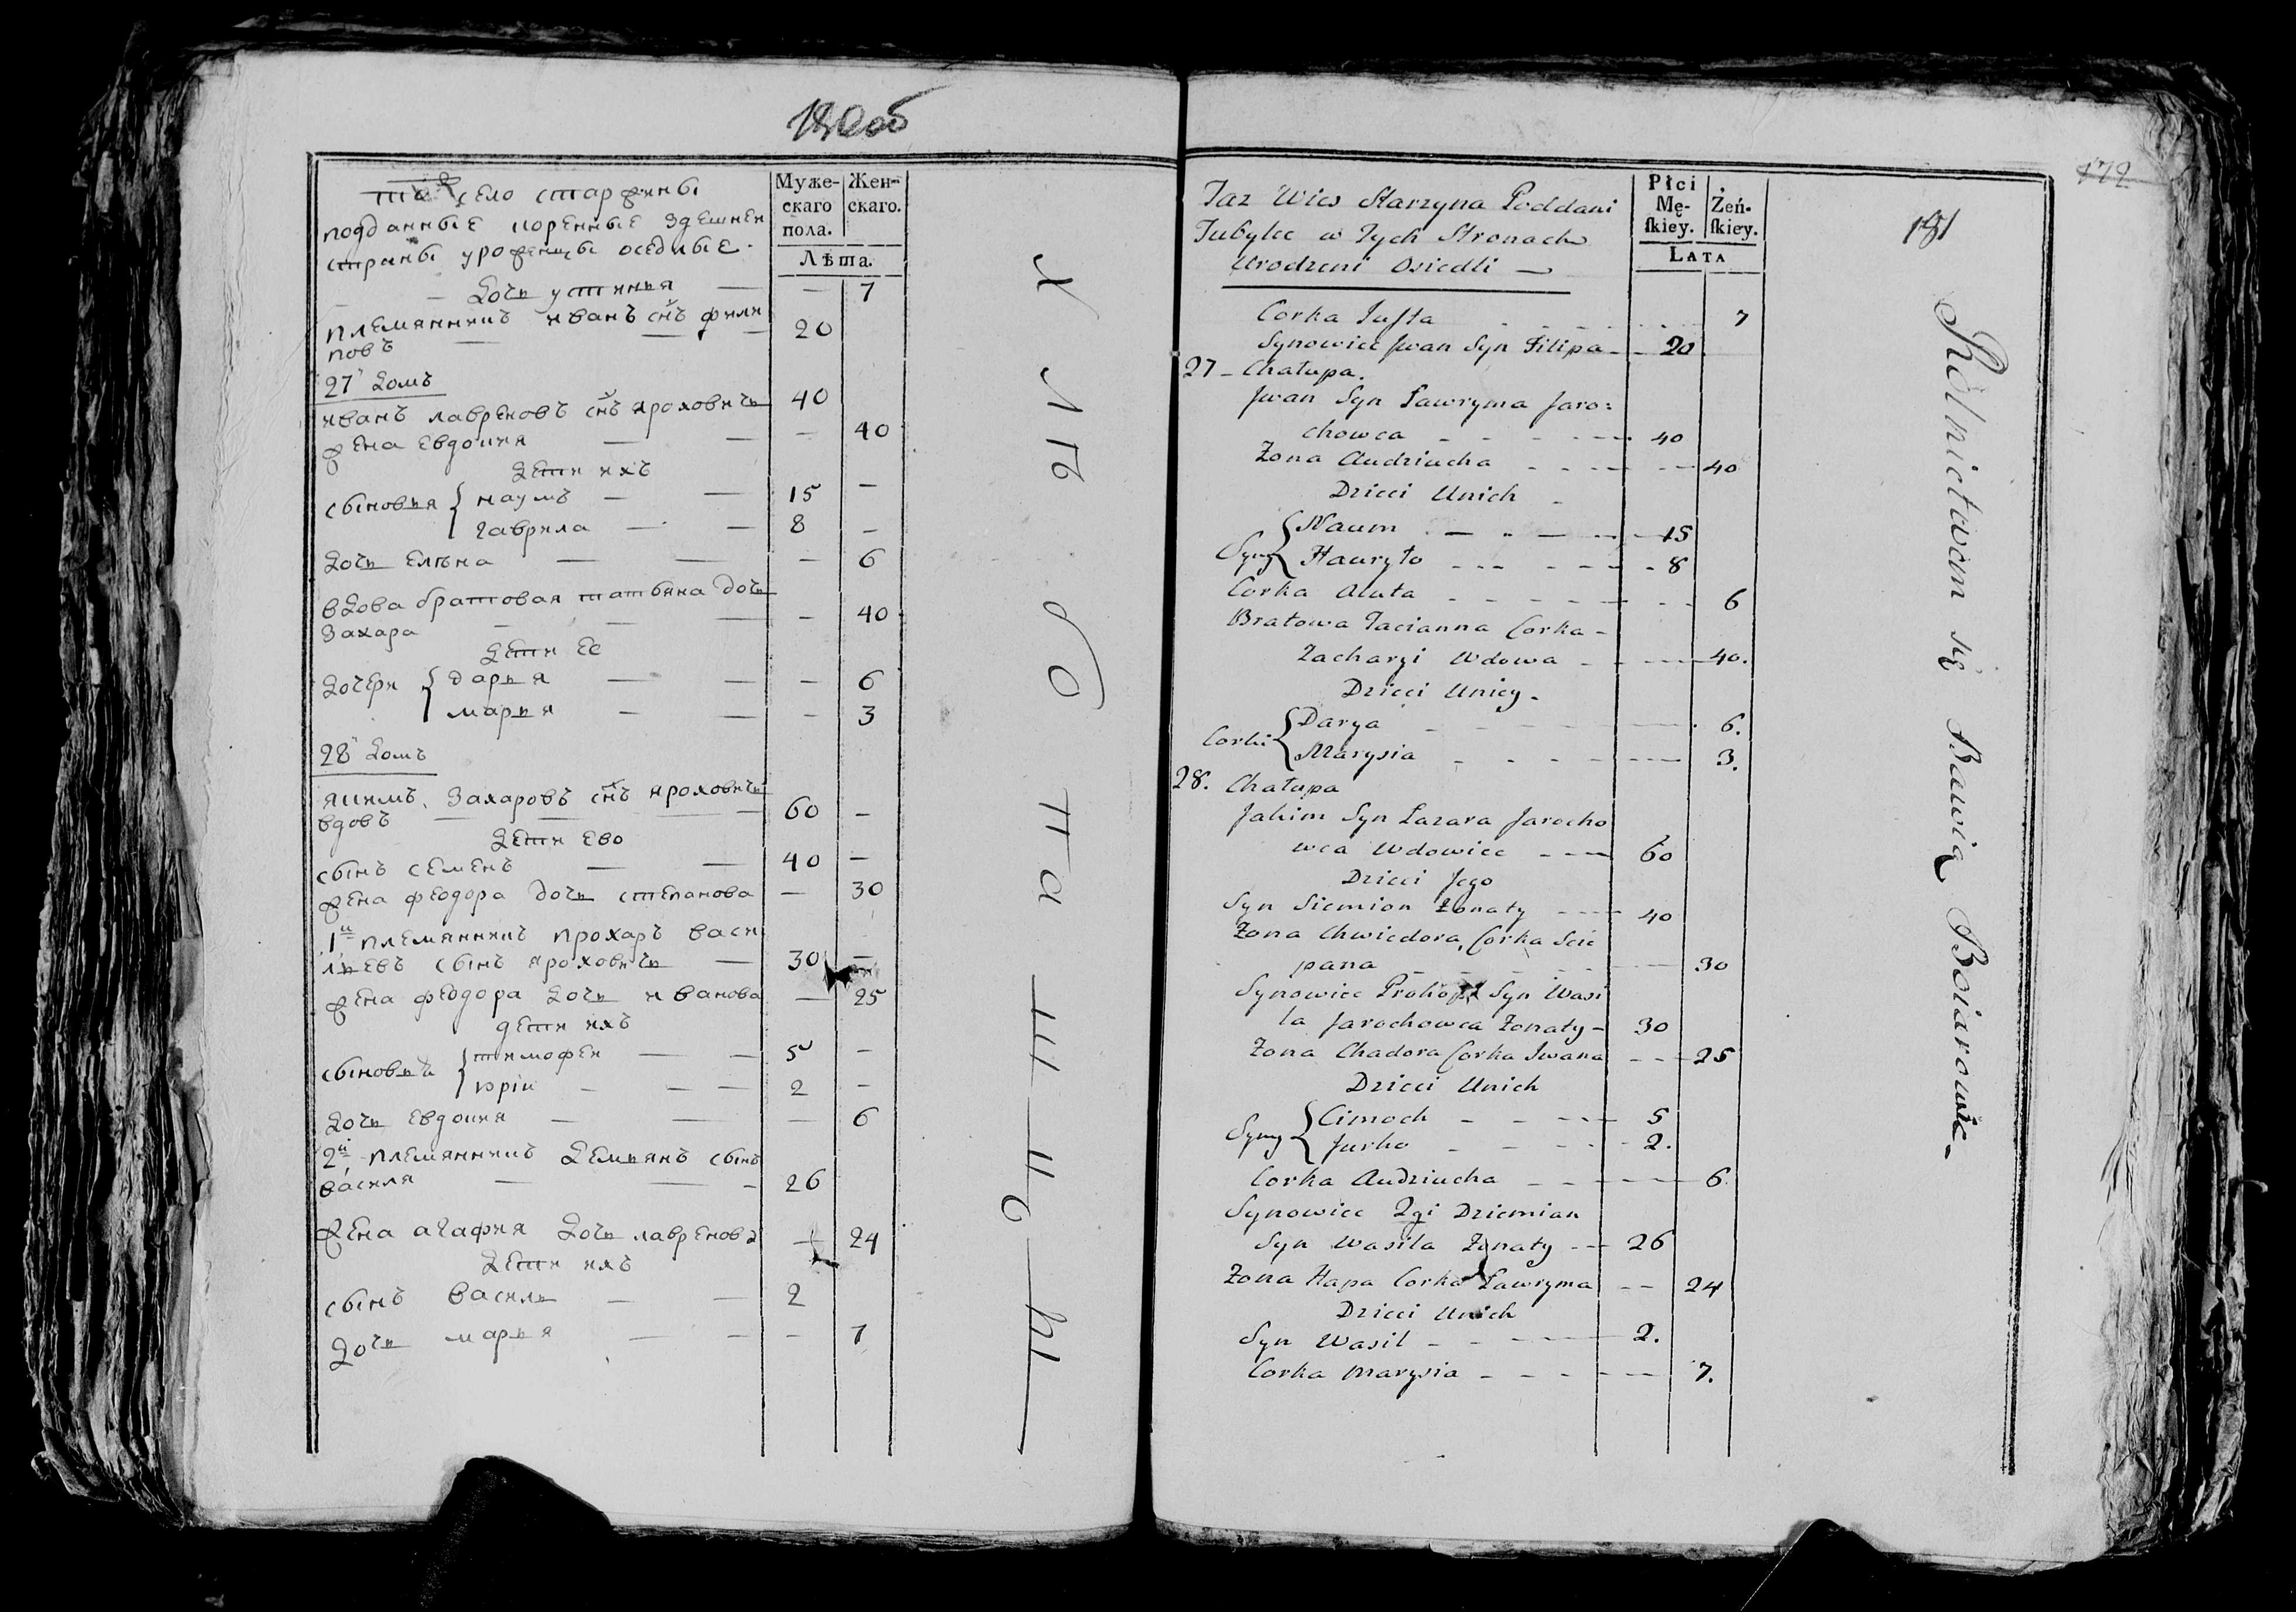 180об
село старжины
подданные коренные здешнеи
страны уроженцы оседлые.
Муже-
скаго
пола.
Жен-
скаго.
Лѣта.
Дочь устинья — — 7
племянникъ иванъ сн̃ъ фили
повъ — — 20
27й домъ
иванъ лавреновъ сн̃ъ ярохович 40
жена евдокия — — — 40
дети ихъ
сыновья { наумъ — — 15 —
гаврила — — 8 —
дочь елѣна — — — 6
вдова братовая татьяна дочь
захара — — — — 40
дети ее
дочери { дарья — — — 6
марья — — — 3
28й домъ
якимъ захаровъ сн̃ъ ярохович
вдовъ — — — 60 —
дети ево
сынъ семенъ — — 40 —
жена феодора дочь степанова — 30
1й племянникъ прохаръ васи
льевъ сынъ ярохович — 30 —
жена феодора дочь иванова — 25
дети ихъ
сыновья { тимофеи — — 5 —
юріи — — — 2 —
дочь евдокия — — — 6
2й племянникъ демьянъ сынъ
василя — — — 26
жена агафия дочь лавренова — 24
дети ихъ
сынъ василь — — 2
дочь марья — — — 7
Хлѣбопашцы
172
181
Taz Wies Starzyna Poddani
Tubylce w Tych Stronach
Urodzeni Osiedli —
Płci
Mę-
skiey.
Żeń-
skiey.
LATA
Corka Justa 7
Synowiec Jwan Syn Filipa 20
27 - Chałupa.
Jwan Syn Ławryma Jaro:
chowca 40
Zona Audziucha 40
Dzieci Unich
Syny { Naum 15
Hawryło 8
Corka Aluta 6
Bratowa Tacianna Corka -
Zacharyi Wdowa 40.
Dzieci Uniey.
Corki { Darya 6.
Marysia 3.
28. Chałupa
Jakim Syn Łazara Jarocho
wca Wdowiec 60
Dzieci Jego
Syn Siemion Zonaty 40
Zona Chwiedora, Corka Scie
pana 30
Synowiec Prokop Syn Wasi
la Jarochowca Zonaty - 30
Zona Chadora Corka Jwana 25
Dzieci Unich
Syny { Cimoch 5
Jurko 2.
Corka Audziucha 6
Synowiec 2gi Dziemian
Syn Wasila Zonaty 26
Zona Hapa Corka Ławryma 24
Dzieci Unich
Syn Wasil 2.
Corka Marysia 7.
Rolnictwem się Bawią Boiarowie